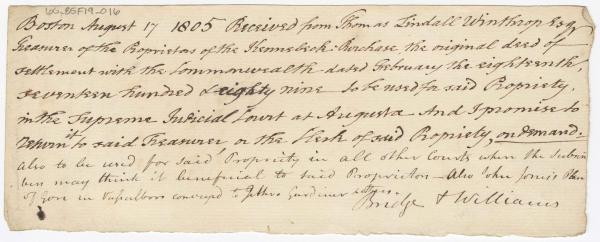 66-BSF19-016
Boston August 17 1805 Received from Thomas Lindall Winthrop Esq
Treasurer of the Proprietors of the Kennebeck Purchase the original deed of
settlement with the Commonwealth dated February the eighteenth,
seventeen hundred & eighty nine to be used for said Propriety,
in the Supreme Judicial Court at Augusta And I promise to
return it to said Treasurer, or the Clerk of said Propriety, on demand.
also to be used for said Propriety in all other Courts when the Subscri
bers may think it beneficial to said Proprietors – Also John Jones's Plan
of Gore in Vassalboro conveyed to Jethro Gardiner &
Bridge & Williams